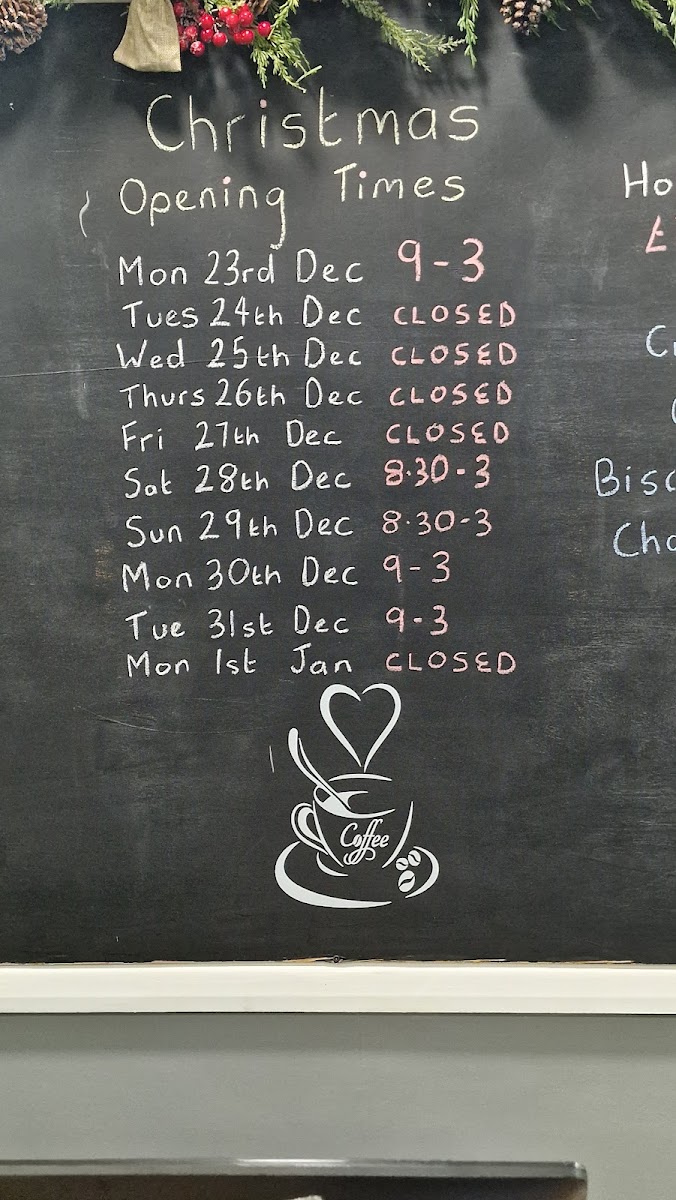 Christmas
Opening Times
Mon 23rd Dec 9-3
Tues 24th Dec CLOSED
Wed 25th Dec CLOSED
Thurs 26th Dec CLOSED
Fri 27th Dec CLOSED
Sat 28th Dec 8.30-3
Sun 29th Dec 8.30-3
Mon 30th Dec 9-3
Tue 31st Dec 9-3
Mon 1st Jan CLOSED
Coffee
Ho
£
Bisc
Cho